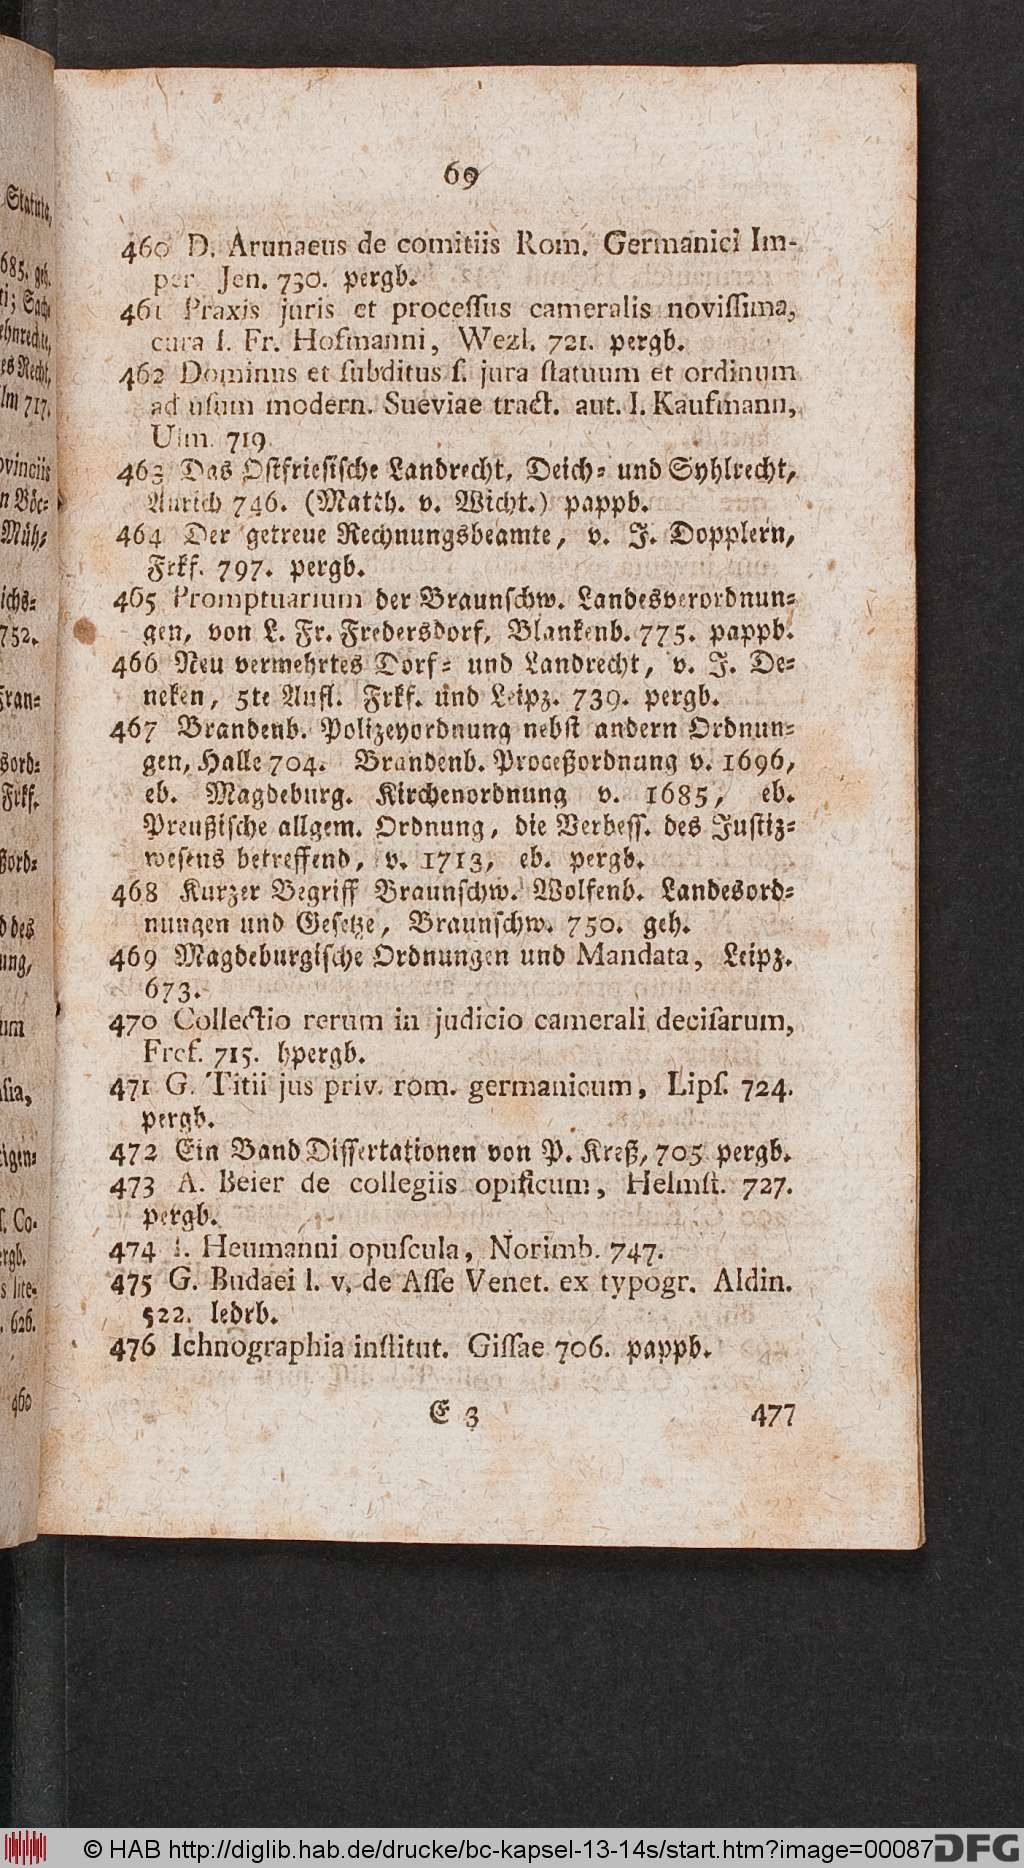 69
460 D. Arunaeus de comitiis Rom. Germanici Im-
per. Jen. 730. pergb.
461 Praxis juris et proceſſus cameralis noviſſima,
cura I. Fr. Hofmanni, Wezl. 721. pergb.
462 Dominus et ſubditus ſ. jura ſtatuum et ordinum
ad uſum modern. Sueviae tract. aut. I. Kaufmann,
Ulm. 719
463 Das Oſtfrieſiſche Landrecht, Deich- und Syhlrecht,
Aurich 746. (Matth. v. Wicht.) pappb.
464 Der getreue Rechnungsbeamte, v. J. Dopplern,
Frkf. 797. pergb.
465 Promptuarium der Braunſchw. Landesverordnun-
gen, von L. Fr. Fredersdorf, Blankenb. 775. pappb.
466 Neu vermehrtes Dorf- und Landrecht, v. J. De-
neken, 5te Aufl. Frkf. und Leipz. 739. pergb.
467 Brandenb. Polizeyordnung nebſt andern Ordnun-
gen, Halle 704. Brandenb. Proceßordnung v. 1696,
eb. Magdeburg. Kirchenordnung v. 1685, eb.
Preußiſche allgem. Ordnung, die Verbeſſ. des Juſtiz-
weſens betreffend, v. 1713, eb. pergb.
468 Kurzer Begriff Braunſchw. Wolfenb. Landesord-
nungen und Geſetze, Braunſchw. 750. geh.
469 Magdeburgiſche Ordnungen und Mandata, Leipz.
673.
470 Collectio rerum in judicio camerali deciſarum,
Frcf. 715. hpergb.
471 G. Titii jus priv. rom. germanicum, Lipſ. 724.
pergb.
472 Ein Band Diſſertationen von P. Kreß, 705 pergb.
473 A. Beier de collegiis opificum, Helmſt. 727.
pergb.
474 I. Heumanni opuſcula, Norimb. 747.
475 G. Budaei l. v. de Aſſe Venet. ex typogr. Aldin.
522. ledrb.
476 Ichnographia inſtitut. Giſſae 706. pappb.
E 3 477
© HAB http://diglib.hab.de/drucke/bc-kapsel-13-14s/start.htm?image=00087
DFG